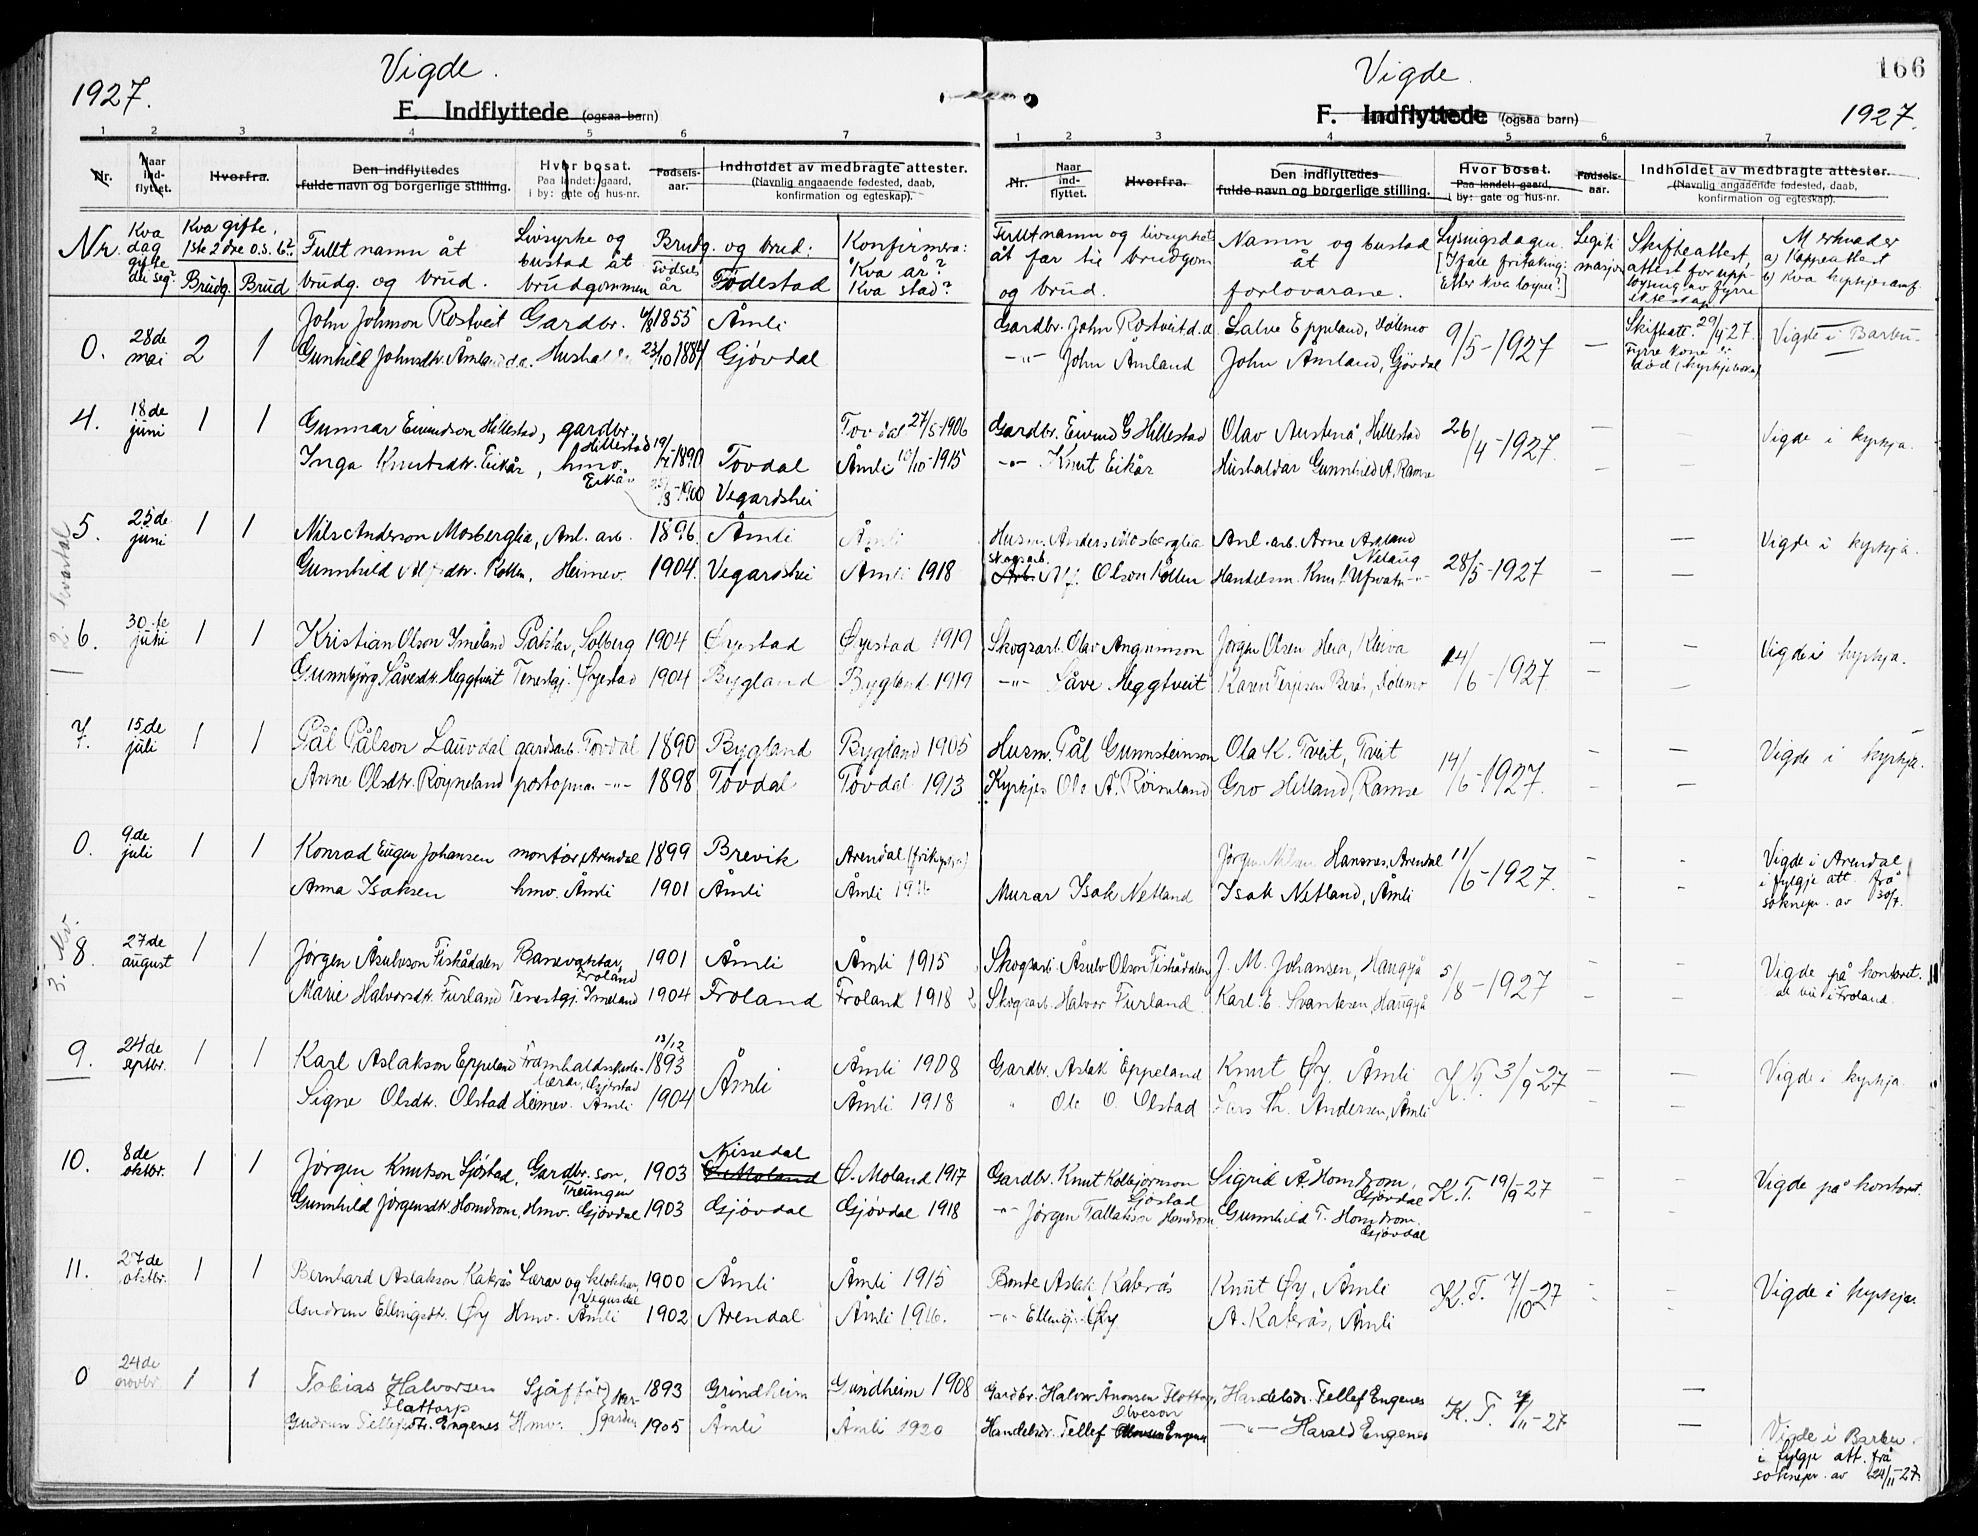 1927.
Vigde.
F. Indflyttede (ogsaa barn)
1 2 3 4 5 6 7
Nr. Naar ind-flyttet. Hvorfra. Den indflyttedes fulde navn og borgerlige stilling. Hvor bosat. Paa landet: gaard, i by: gate og hus-nr. Fødsels-aar. Indholdet av medbragte attester. (Navnlig angaaende fødested, daab, konfirmation og egteskap).
Nr. Kva dag gifte dei seg? Kva gifte. 1ste 2dre o.s.b? Brudg. Brud Fullt namn åt brudg. og brud. Livsyrke og bustad åt brudgommen Brudg. og brud: Fødsels år Fødestad Konfirmera: Kva år? Kva stad?
0. 28de mai 2 1 John Johnson Rostveit Gardbr. 1855 Åmli
Gunhild Johnsdtr. Åmland 23/10 1884 Gjøvdal
4. 18de juni 1 1 Gunnar Eivindson Hillestad, gardbr. Hillestad 1890 Tovdal Tovdal 27/5-1906
Inga Knutsdtr. Eikår, hmv. Eikår 1900 Vegardshei Åmli 10/10-1915
2. kvartal
5. 25de juni 1 1 Nils Anderson Mosberglia, Anl. arb. 1896. Åmli Åmli
Gunnhild Kollen, Heimev. 1904. Vegardshei Åmli 1918
6. 30.te juni 1 1 Kristian Olson Imeland Paktar, Solberg 1904 Øyestad Øyestad 1919
Gunnbjørg Såvesdtr. Heggtveit Tenestgj. Øyestad 1904 Bygland Bygland 1919
7. 15de juli 1 1 Pål Pålson Lauvdal gardsarb. Tovdal 1890 Bygland Bygland 1905
Anne Olsdtr. Røyneland postopnar -"- 1898 Tovdal Tovdal 1913
0. 9de juli 1 1 Konrad Eugen Johansen montør, Arendal 1899 Brevik Arendal (frikyrkja)
Anna Isaksen hmv. Åmli 1901 Åmli Åmli
3. kv.
8. 27de august 1 1 Jørgen Åsulvson Fiskådalen Banevaktar, Froland 1901 Åmli Åmli 1915
Marie Halvorsdtr. Furland Tenestgj. Imeland 1904 Froland Froland 1918
9. 24de septbr. 1 1 Karl Aslakson Eppeland Framhaldsskule-lærar, Gjerstad 13/12 1893 Åmli Åmli 1908
Signe Olsdtr. Olstad Heimev. Åmli 1904 Åmli 1918
10. 8de oktbr. 1 1 Jørgen Knutson Sjøstad, Gardbr. son, Treungen 1903 Nissedal Ø. Moland 1917
Gunnhild Jørgensdtr. Homdrom, Hmv. Gjøvdal 1903 Gjøvdal Gjøvdal 1918
11. 27de oktbr. 1 1 Bernhard Aslakson Katerås Lærar og klokkar, Vegusdal 1900 Åmli Åmli 1915
Gudrun Ellingsdtr. Øy Hmv. Åmli 1902 Arendal Åmli 1916.
0 24de novbr. 1 1 Tobias Halvorsen Flottorp Sjåffør 1893 Grindheim Grindheim 1908
Gudrun Tellefsdtr. Engenes Hmv. 1905 Åmli Åmli 1920
Vigde.
166
F. Indflyttede (ogsaa barn)
1927.
1 2 3 4 5 6 7
Nr. Naar ind-flyttet. Hvorfra. Den indflyttedes fulde navn og borgerlige stilling. Hvor bosat. Paa landet: gaard, i by: gate og hus-nr. Fødsels-aar. Indholdet av medbragte attester. (Navnlig angaaende fødested, daab, konfirmation og egteskap).
Fullt namn og livsyrket åt far til brudgom og brud. Namn og bustad åt forlovarane. Lysingsdagen. [I fall fritaking: Etter kva lovpnr?] Legitimasjon Skifteattest, attest for uppløysing av fyrre ekteskap Merknader a) Koppeattest b) Kva kyrkjesamf.
Gardbr. John Rostveit d.e. Salve Eppeland, Dølemo 9/5-1927 — Skifteatt. 29/4 27. Vigde i Barbu.
-"- John Åmland John Åmland, Gjøvdal Fyrre kone er død (kyrkjeboka)
Gardbr. Eivind G Hillestad Olav Austenå, Hillestad 26/4-1927. — — Vigde i kyrkja.
-"- Knut Eikår Hushaldar Gunnhild A. Ramse
Husm. Anders Mosberglia Anl. arb. Arne Askland Nelaug 28/5-1927 — Vigde i kyrkja.
Skogsarb. Olson Kollen Handelsm. Knut Ufsvatn -"-
Skogsarb. Olav Angrimson Jørgen Olsen Hera, Kleiva 14/6-1927. — — Vigde i kyrkja.
-"- Såve Heggtveit Karen Terjesen Berås, Dølemo
Husm. Pål Gunnsteinson Ola K. Tveit, Tveit 14/6-1927. — — Vigde i kyrkja.
Kyrkjes. Ole Å. Røineland Gro Hilland, Ramse
Jørgen Hansnes, Arendal 11/6-1927. — Vigde i Arendal i fylgje att. frå soknepr. av 30/7.
Murar Isak Netland Isak Netland, Åmli
Skogsarb. Åsulv Olson Fiskådalen J. M. Johansen, Haugsjå 5/8-1927 — — Vigde på kontoret. Froland.
Skogsarb. Halvor Furland Karl E. Svantesen, Haugsjå
Gardbr. Aslak Eppeland Knut Øy, Åmli K.T. 3/9-27 — — Vigde i kyrkja.
" Ole O. Olstad Lars Th. Andersen, Åmli
Gardbr. Knut Kolbjørnson Sjøstad Sigrid Å Homdrom, Gjøvdal K.T. 19/9 27 Vigde på kontoret.
-"- Jørgen Tallakson Homdrom Gunnhild T. Homdrom. Gjøvdal
Bonde Aslak Katerås Knut Øy, Åmli K.T. 7/10-27 Vigde i kyrkja.
-"- Elling Øy A. Katerås, Åmli
Gardbr. Halvor Ånonsen Flottorp, Handelsdr. Tellef Engenes K.T. — Vigde i Barbu i fylgje att. frå soknepr. av 24/11-27.
Handelsdr. Tellef Olveson Engenes -"- Harald Engenes